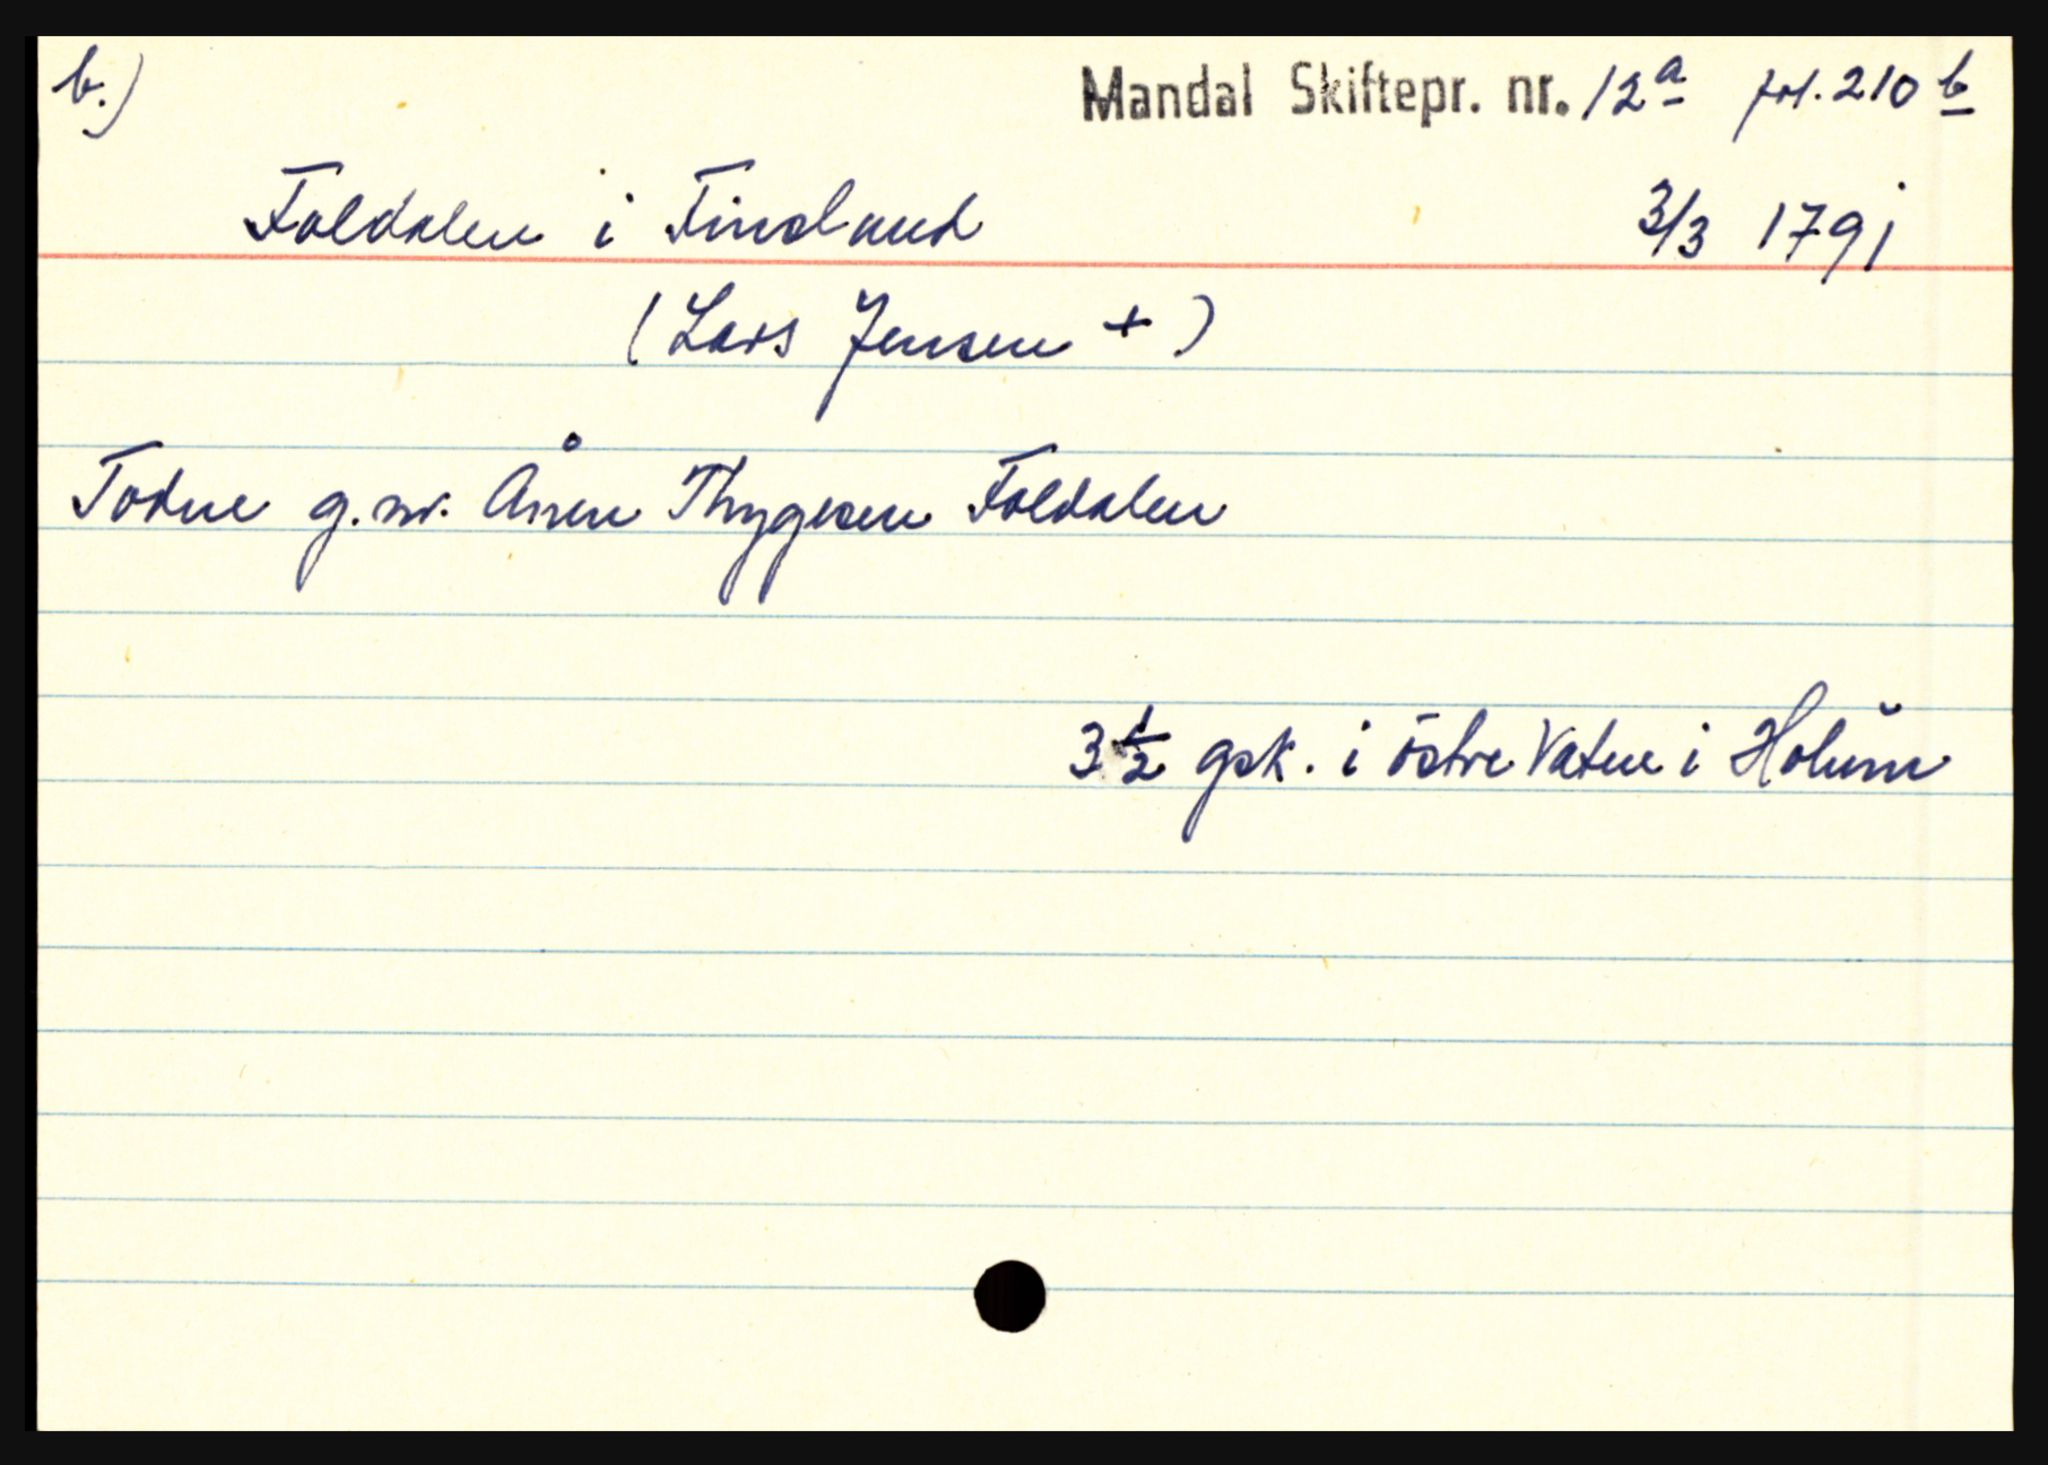 b.) Mandal Skiftepr. nr. 12a fol. 210 b
Foldalen i Findland 3/3 1791
(Lars Jensen +)
Todne g.m. Ånen Thygesen Foldalen
3 1/2 gsk. i östre Vatne i Holum